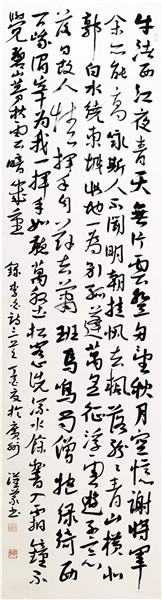 牛渚西江夜青天無片雲登舟望秋月空憶謝將軍
余亦能高詠斯人不可聞明朝挂帆去楓葉落紛々青山橫北
郭白水繞東城此地一為別孤蓬萬里征浮雲遊子意
落日故人情揮手自茲去蕭々班馬鳴蜀僧抱綠綺西
下峨眉峰為我一揮手如聽萬壑松客心洗流水餘響入霜鐘不
覺碧山暮秋雲暗幾重 錄李白詩三首 丁亥夏於廣州 書